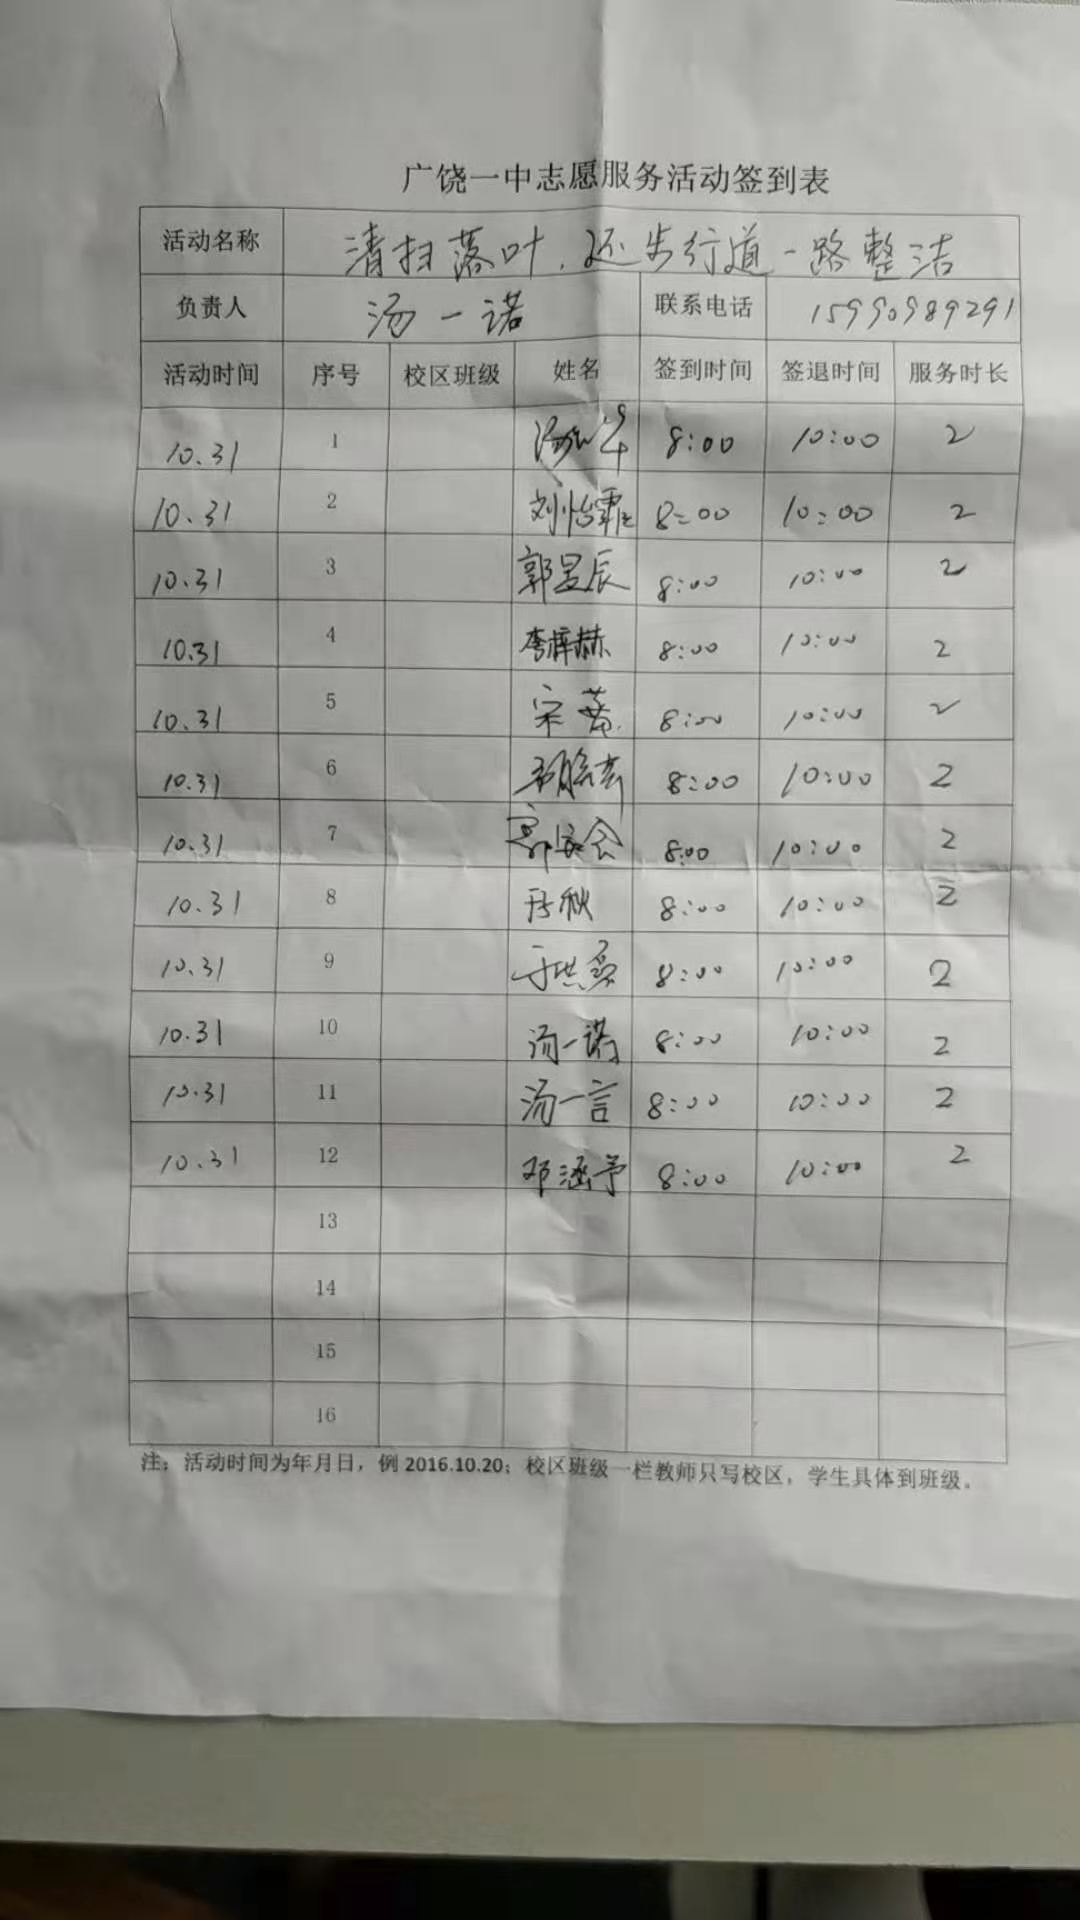 广饶一中志愿服务活动签到表
活动名称 清扫落叶，还步行道一路整洁
负责人 汤一诺 联系电话 15990989291
活动时间 序号 校区班级 姓名 签到时间 签退时间 服务时长
10.31 1 8:00 10:00 2
10.31 2 刘怡霏 8:00 10:00 2
10.31 3 郭昱辰 8:00 10:00 2
10.31 4 李梓赫 8:00 10:00 2
10.31 5 宋 8:00 10:00 2
10.31 6 8:00 10:00 2
10.31 7 8:00 10:00 2
10.31 8 8:00 10:00 2
10.31 9 8:00 10:00 2
10.31 10 汤一诺 8:00 10:00 2
10.31 11 汤一言 8:00 10:00 2
10.31 12 邓涵予 8:00 10:00 2
13
14
15
16
注：活动时间为年月日，例 2016.10.20；校区班级一栏教师只写校区，学生具体到班级。